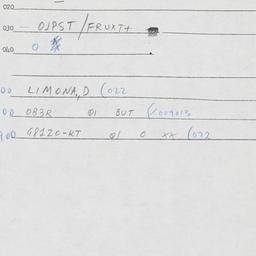 020
030 OJPST/FRUXT+
040 0
00 LIMONA,D (022
00 083R 01 BUT (009013
900 G81ZO-KT 01 0 XX (022